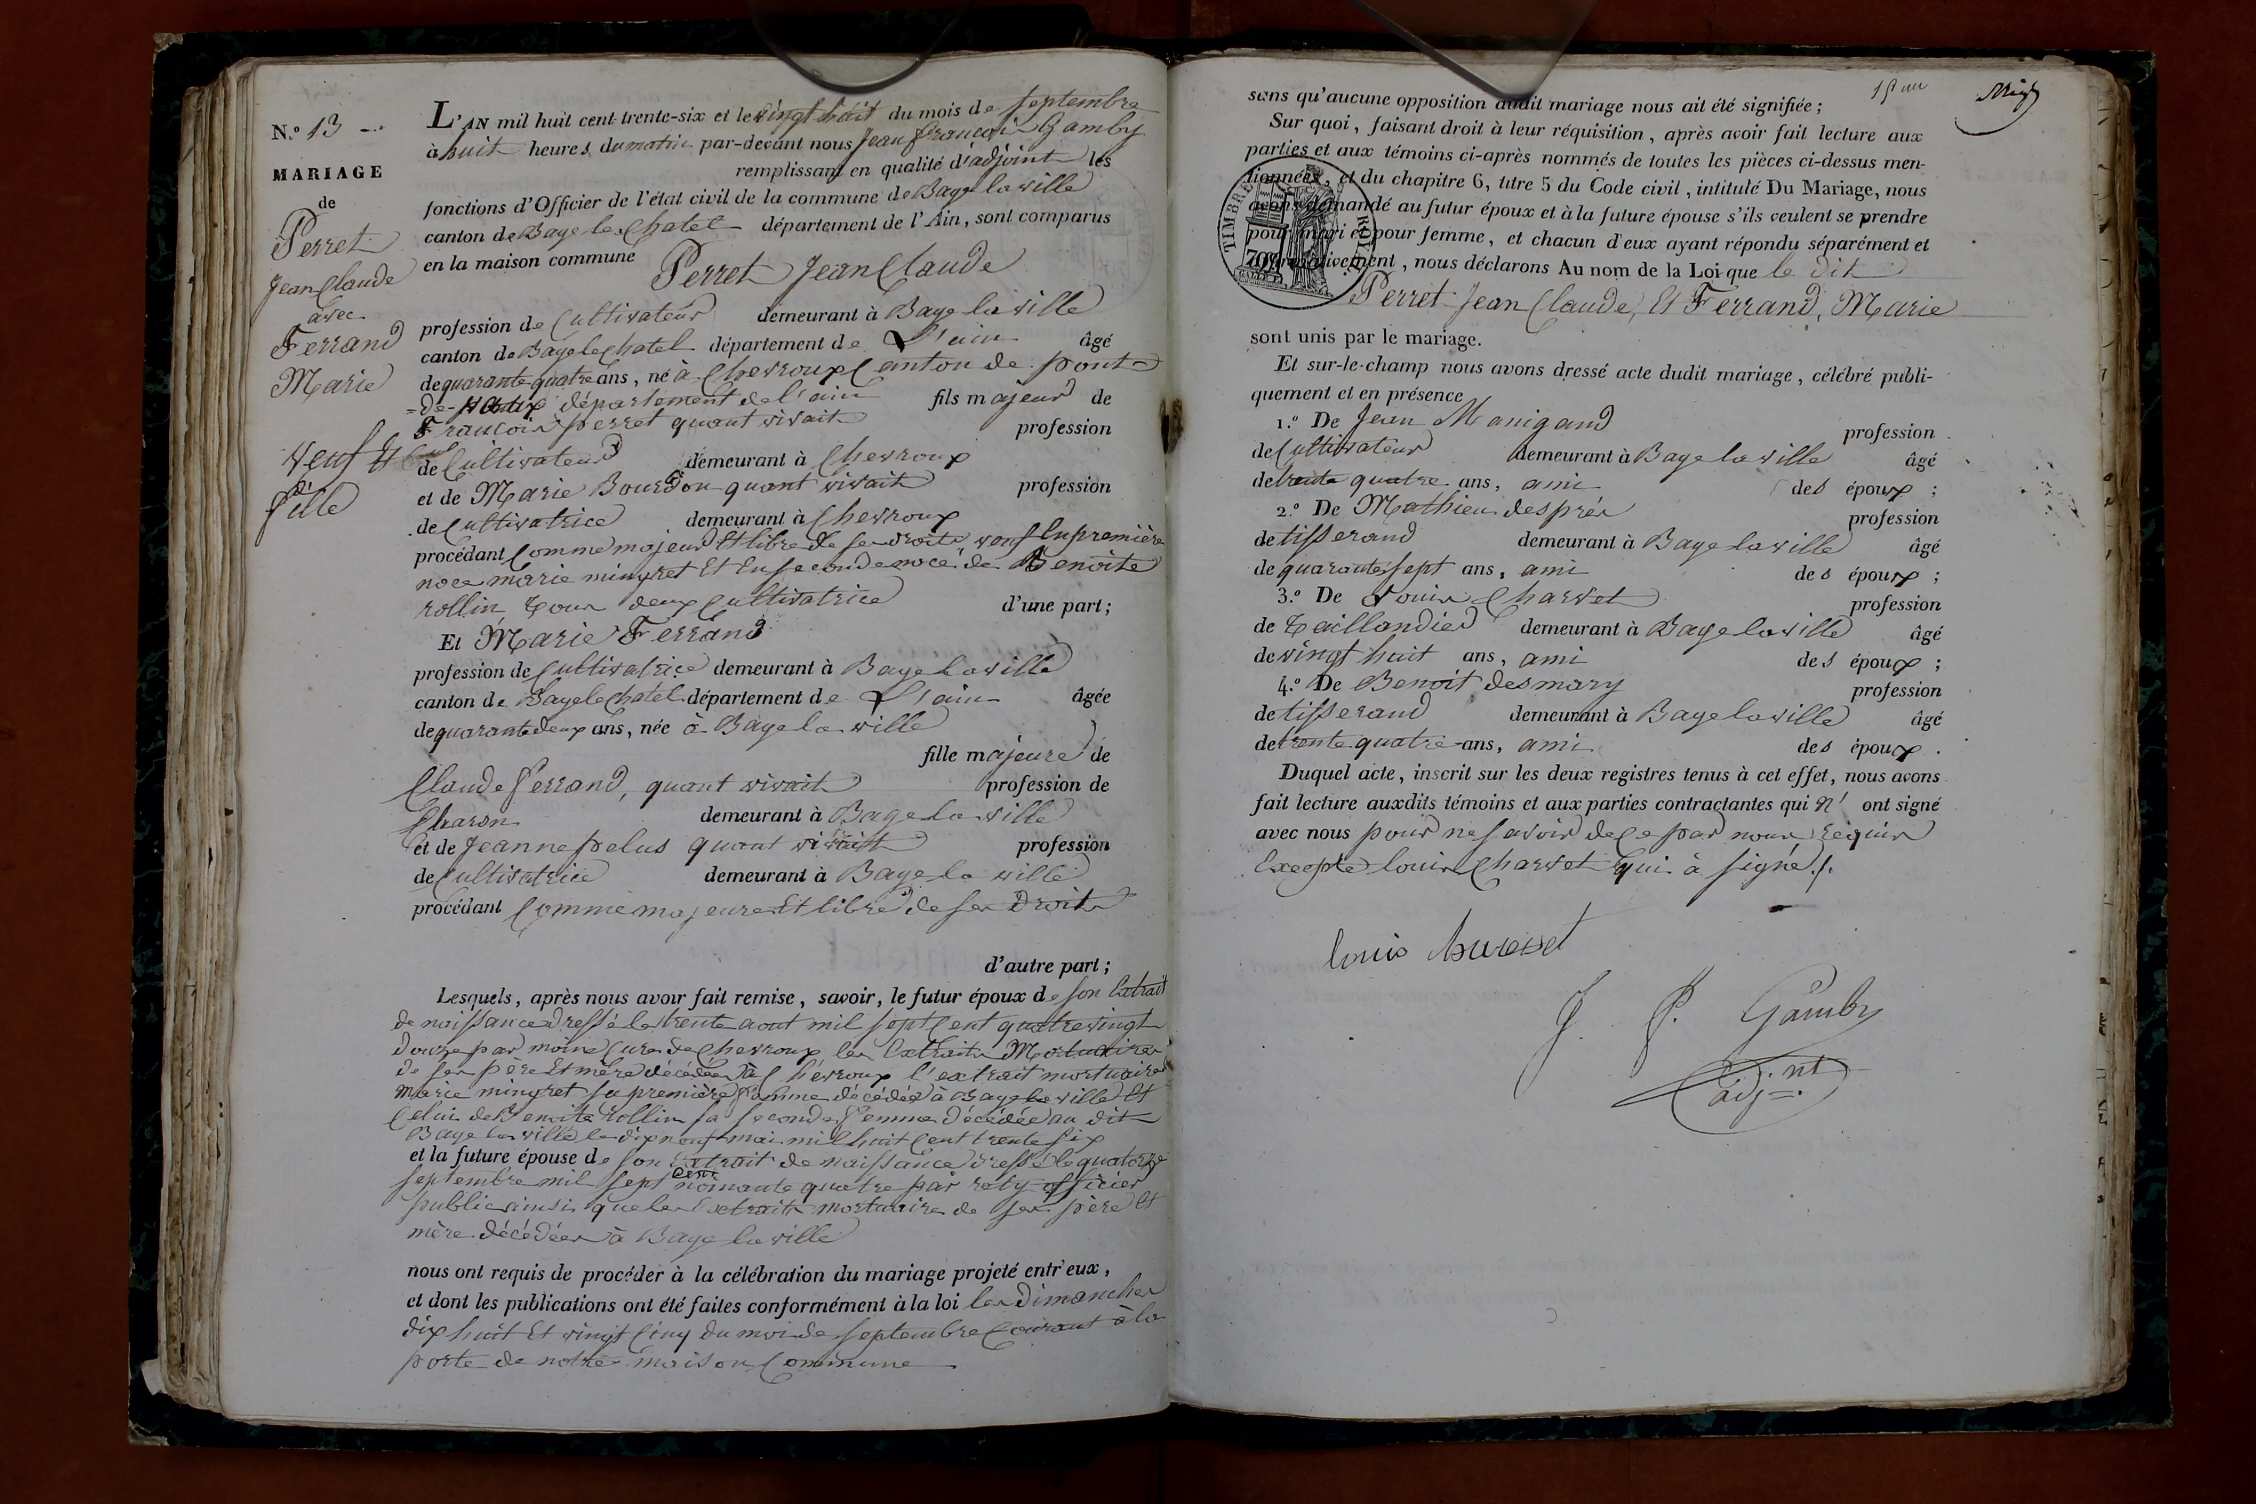 N.º 13
MARIAGE
de
Perret
Jean Claude
avec
Ferrand
Marie
Veuf Et
fille
L'AN mil huit cent trente-six et le vingt huit du mois de septembre
à huit heures du matin par-devant nous Jean françois Gamby
remplissant en qualité d'adjoint les
fonctions d'Officier de l'état civil de la commune de Bage la ville
canton de Bage le Chatel département de l'Ain, sont comparus
en la maison commune Perret Jean Claude
profession de Cultivateur demeurant à Bage la ville
canton de Bage le Chatel département de L'ain âgé
de quarante quatre ans, né à Chevroux Canton de pont=
=de- Vaux département de l'ain fils majeur de
François perret quant vivait profession
de Cultivateur demeurant à Chevroux
et de Marie Bourdon quant vivait profession
de Cultivatrice demeurant à Chevroux
procédant Comme majeur Et libre de ses droits veuf En première
noce marie mingret Et En seconde noce de Benoite
rollin tous deux Cultivatrice d'une part;
Et Marie Ferrand
profession de Cultivatrice demeurant à Bage la ville
canton de Bage le Chatel département de L'ain âgée
de quarante deux ans, née à Bage la ville
fille majeure de
Claude ferrand, quant vivait profession de
Charon demeurant à Bage la ville
et de Jeanne pelus quant vivait profession
de Cultivatrice demeurant à Bage la ville
procédant Comme majeure Et libre de ses Droits
d'autre part;
Lesquels, après nous avoir fait remise, savoir, le futur époux de son Extrait
de naissance dressé le trente aout mil sept Cent quatre vingt
douze par moine Cure de Chevroux les Extraits Mortuaires
de ses père Et mère décédées à Chevroux l'extrait mortuaire
Marie mingret sa première femme décédée à Bage la ville Et
Celui de Benoite Rollin sa seconde femme Décédée au dit
Bage la ville le dix neuf mai mil huit Cent trente six
et la future épouse de son Extrait de naissance dressé le quatorze
septembre mil sept Cent nonante quatre par roty officier
public ainsi que les Extraits mortuaires de ses père Et
mère décédées à Bage la ville
nous ont requis de procéder à la célébration du mariage projeté entr'eux,
et dont les publications ont été faites conformément à la loi les Dimanches
dix huit Et vingt Cinq du mois de septembre Courant à la
porte de notre maison Commune
sans qu'aucune opposition audit mariage nous ait été signifiée;
Sur quoi, faisant droit à leur réquisition, après avoir fait lecture aux
parties et aux témoins ci-après nommés de toutes les pièces ci-dessus men-
tionnées, et du chapitre 6, titre 5 du Code civil, intitulé Du Mariage, nous
avons demandé au futur époux et à la future épouse s'ils veulent se prendre
pour mari et pour femme, et chacun d'eux ayant répondu séparément et
affirmativement, nous déclarons Au nom de la Loi que le dit
TIMBRE ROYAL
Perret Jean Claude, Et Ferrand, Marie
sont unis par le mariage.
Et sur-le-champ nous avons dressé acte dudit mariage, célébré publi-
quement et en présence
1.º De Jean Manigand profession
de Cultivateur demeurant à Bage la ville âgé
de trente quatre ans, ami des époux;
2.º De Mathieu desprès profession
de tisserand demeurant à Bage la ville âgé
de quarante sept ans, ami des époux;
3.º De Louis Charvet profession
de Taillandier demeurant à Bage la ville âgé
de vingt huit ans, ami des époux;
4.º De Benoit desmary profession
de tisserand demeurant à Bage la ville âgé
de trente quatre ans, ami des époux.
Duquel acte, inscrit sur les deux registres tenus à cet effet, nous avons
fait lecture auxdits témoins et aux parties contractantes qui n' ont signé
avec nous pour ne savoir de Ce par nous requis
Excepté louis Charvet qui à signé ./.
louis
J. f. Gamby
adj.nt